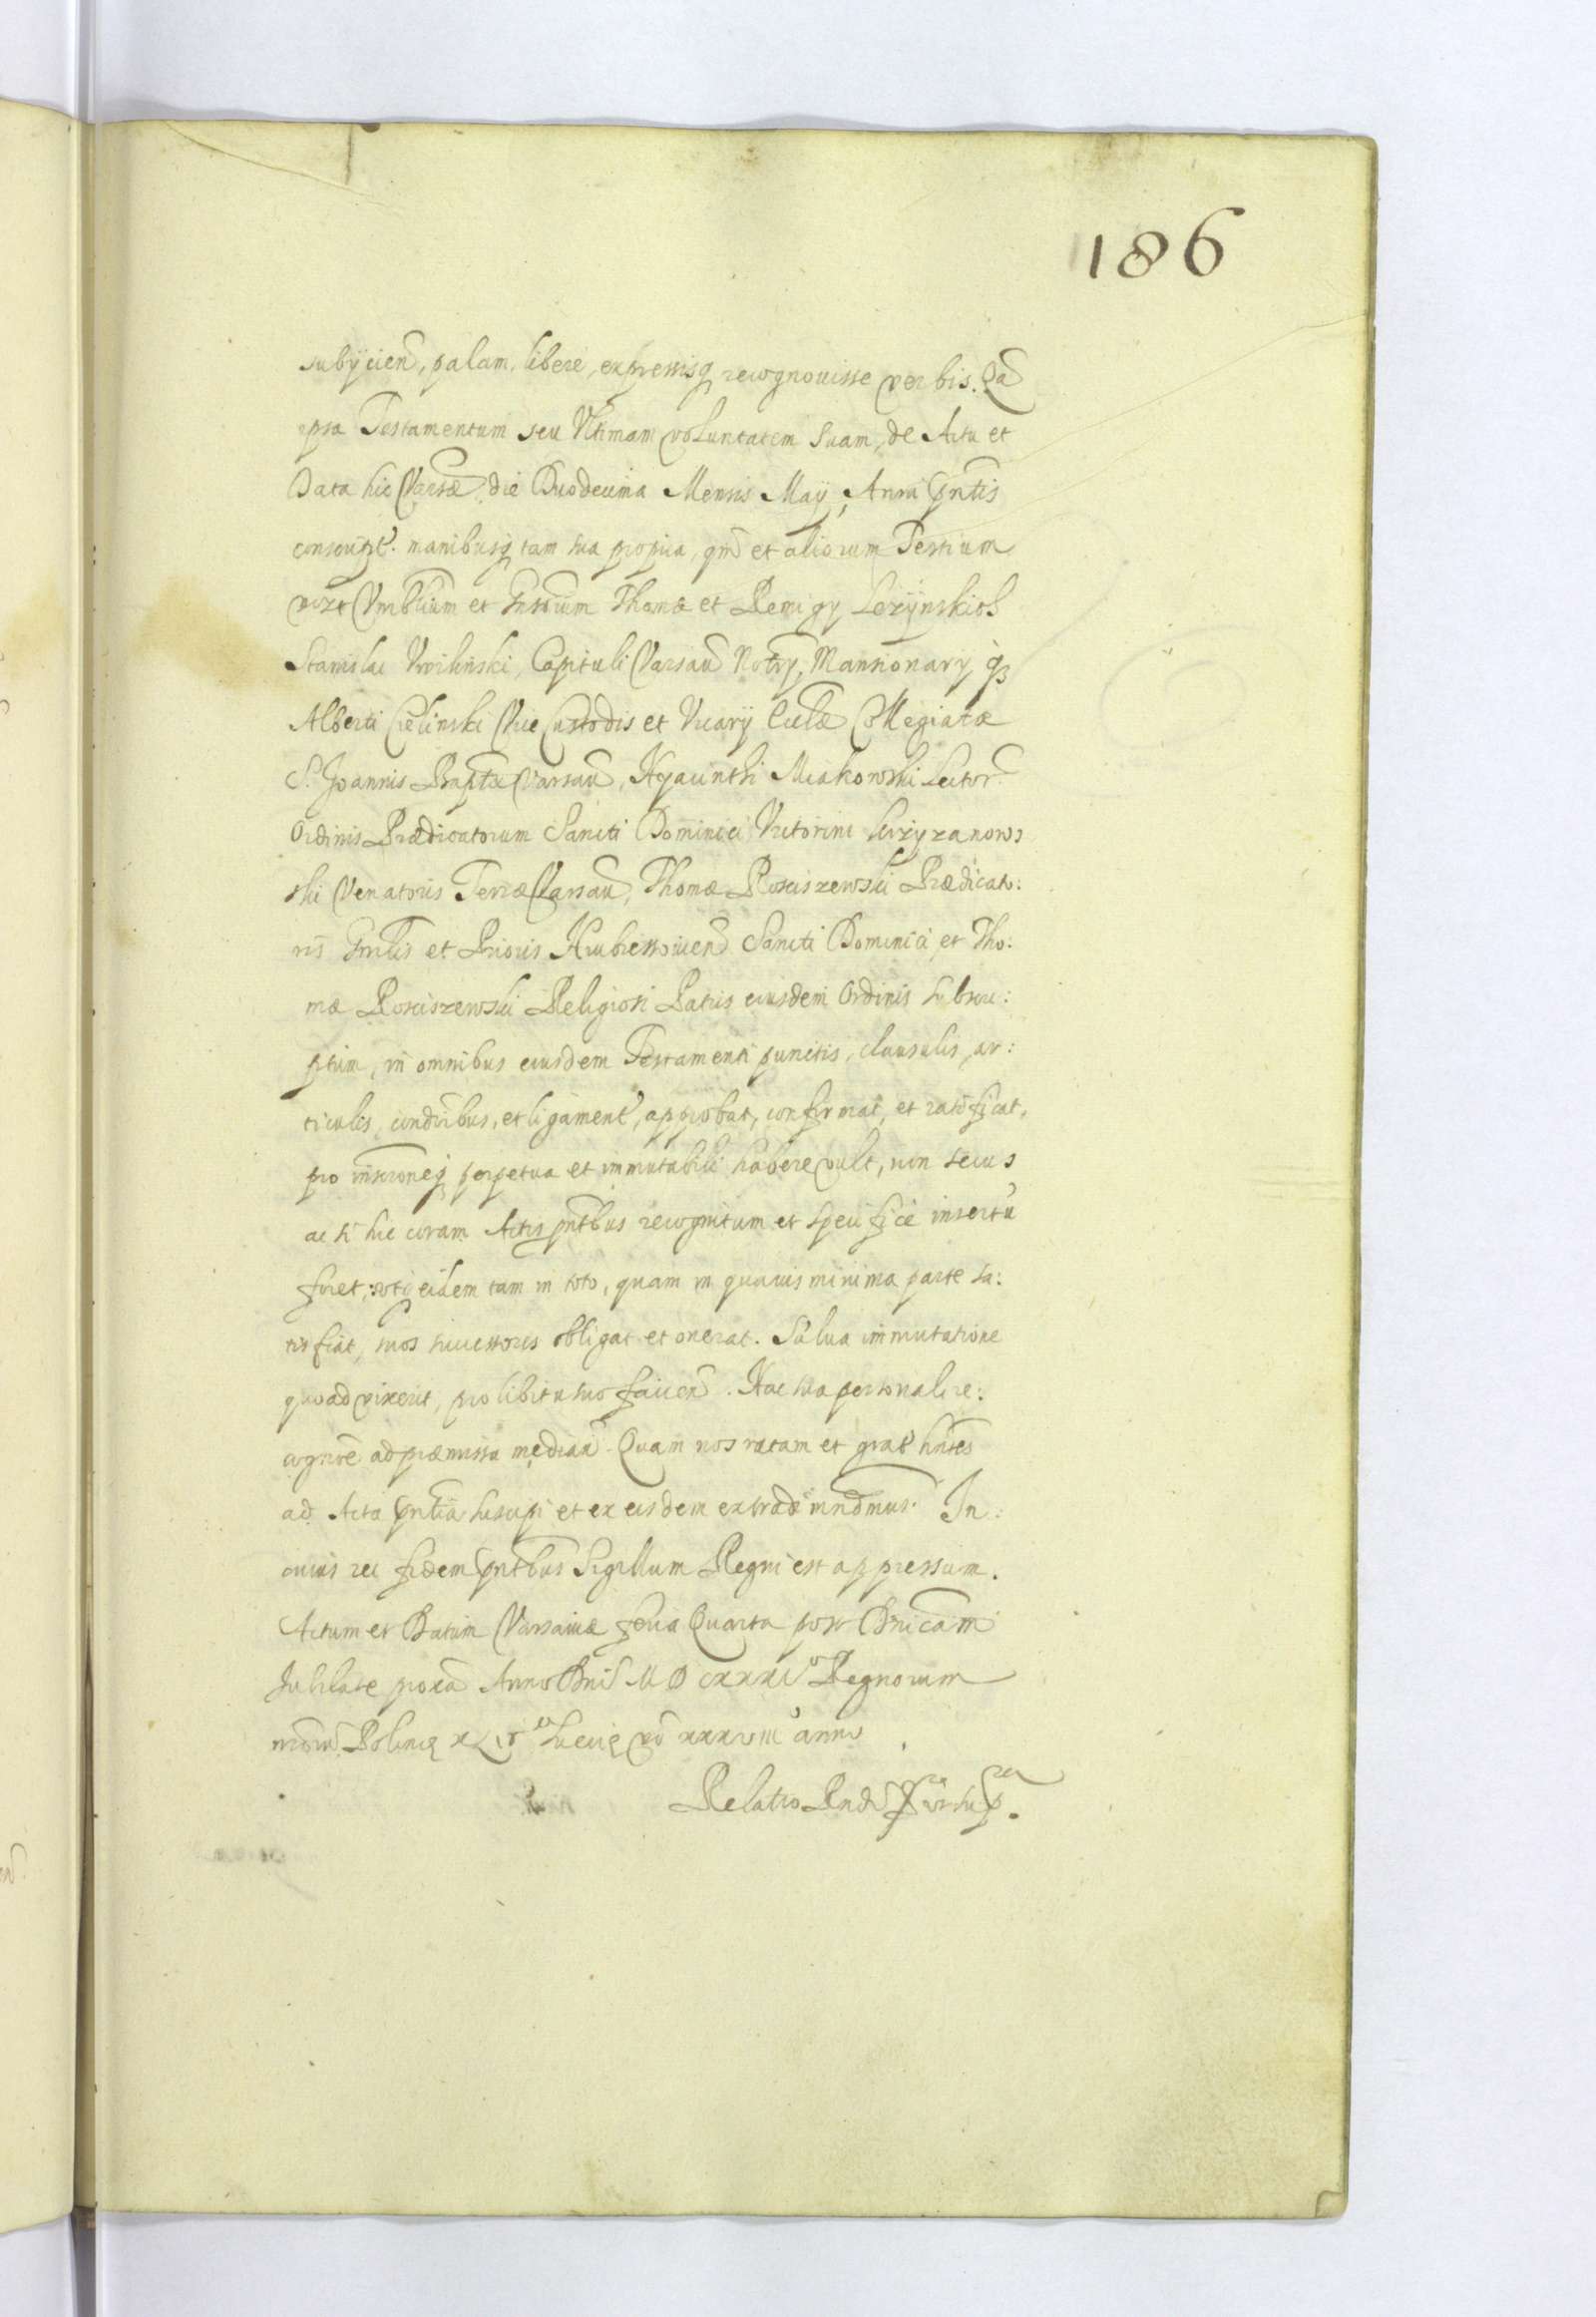 186
subÿcien̄, palam, libere, expressisq̨ recognouisse verbis. Qā
ipsa Testamentum seu Vltimam voluntatem suam, de Actu et
Data hic Varsæ die Duodecima Mensis Maÿ, Anni pn̄tis
manibusq̨ tam sua propria, qm̄ et aliorum Testium
Vrblium et Gnsorum Thomæ et Remigÿ
Stanislai Capituli Varsauˉ Notrÿ, Mansionarÿ q̨
Alberti Cielinski Vice Custodis et Vicarÿ Eccl̄æ Collegiatæ
S. Joannis Bap̄tæ Varsauˉ, Hyacinthi Miakowski Lector.
Ordinis Prædicatorum Sancti Dominici Victorini Krzyzanows
ski Venatoris Terræ Varsauˉ, Thomæ Rosciszewski Prædicato:
ris Gnr̄lis et Prioris Hrubiessouien̄ Sancti Dominici, et Tho:
mæ Rosciszewski Religiosi Patris eiusdem Ordinis subscri:
ptum, in omnibus eiusdem Testamenti punctis, clausulis, ar:
ticulis, condnībus, et ligament, approbat, confirmat, et ratificat,
pro perpetua et immutabili habere vult, non secus
ac si hic coram Actis pn̄tbus recognitum et specifice insertū
foret, vtq̨ eidem tam in toto, quam in quauis minima parte sa:
tisfiat, suos successores obligat et onerat. Salua immutatione
quoad vixerit, pro libitu suo facien̄. Hac sua personali re:
cognōe ad præmissa median̄. Quam nos ratam et grat hn̄tes
ad Acta pn̄tia suscipi et ex eisdem extradi mn̄dmus. In
cuius rei fidem pn̄tbus Sigillum Regni est appressum.
Actum et Datum Varsauiæ feria Quarta post Dn̄icam
Jubilate proxā Anno Dn̄i M D CXXXI Regnorum
nr̄orū Poliniæ XLIV Sueciæ vō XXXVIII anno
Relatio